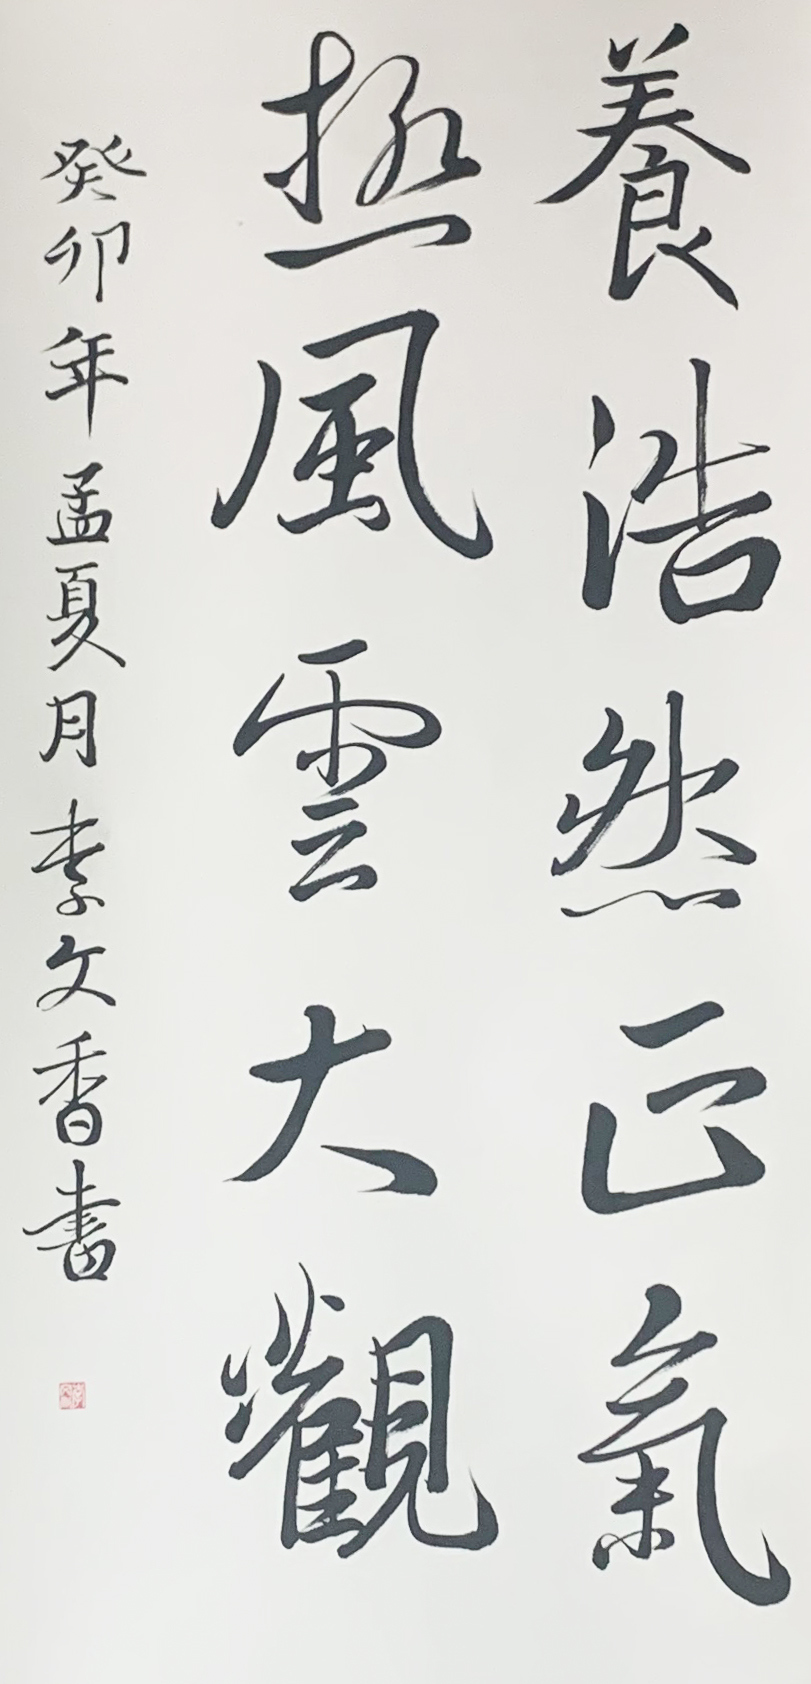 養浩然正氣
極風雲大觀
癸卯年孟夏月李文香書